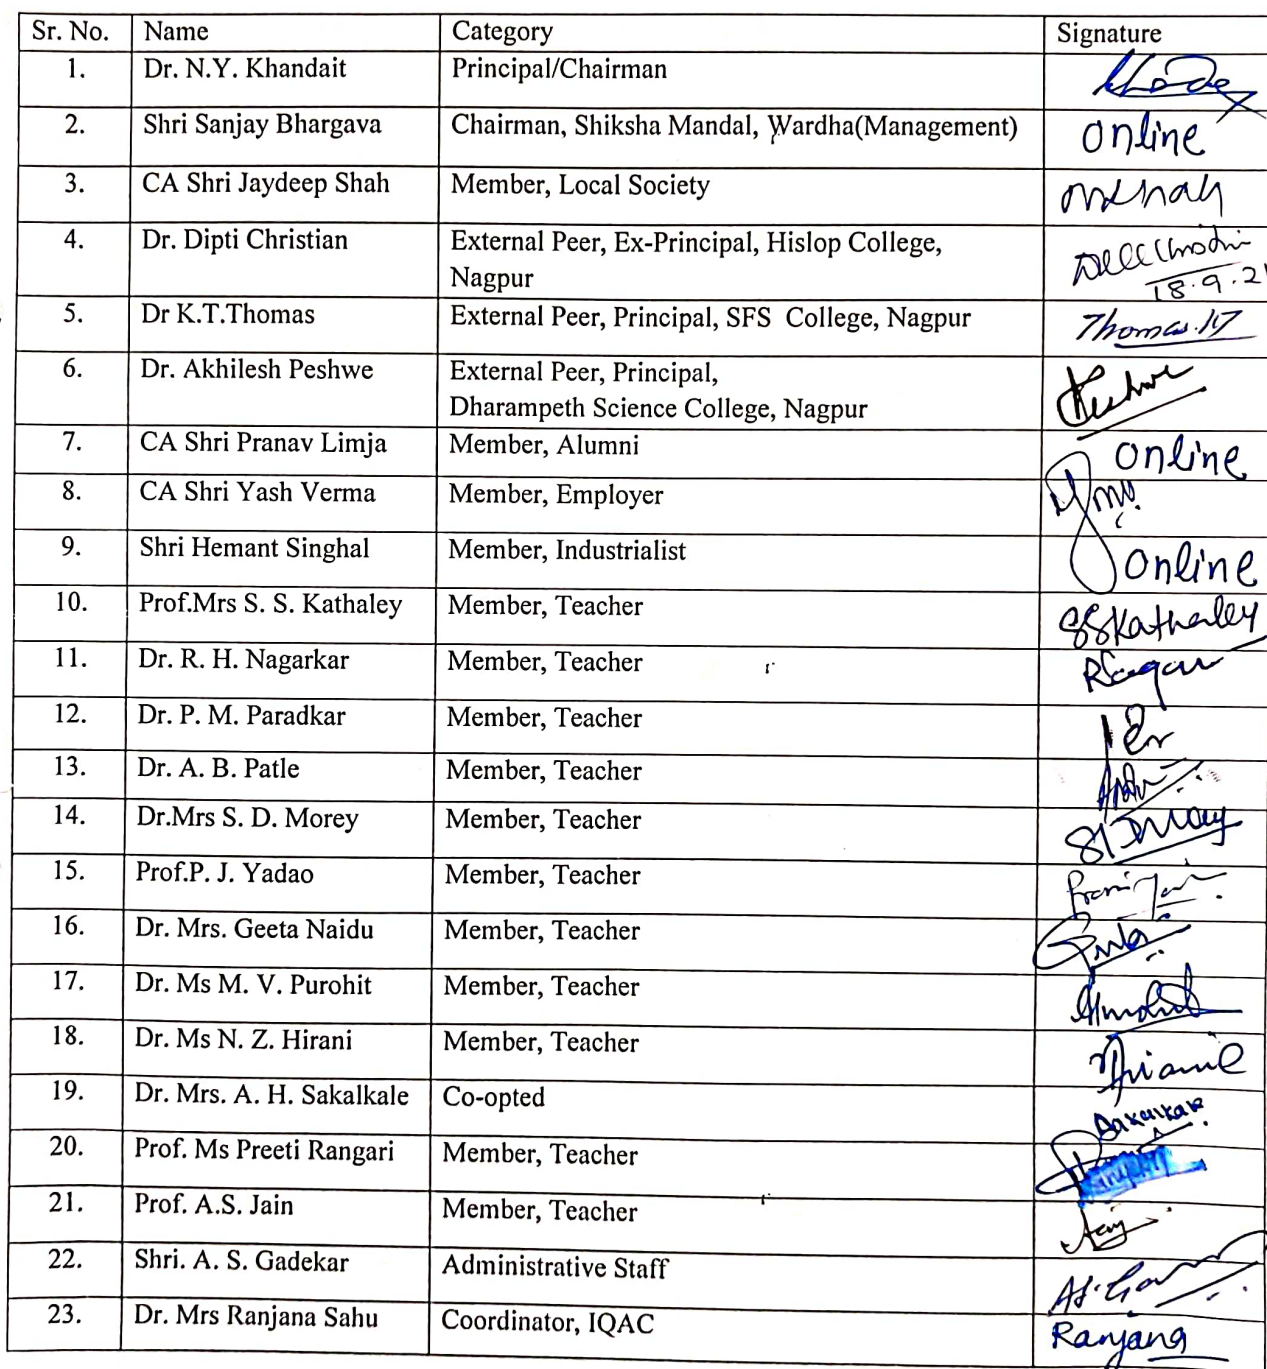 Sr. No. Name Category Signature
1. Dr. N.Y. Khandait Principal/Chairman
2. Shri Sanjay Bhargava Chairman, Shiksha Mandal, Wardha(Management) online
3. CA Shri Jaydeep Shah Member, Local Society
4. Dr. Dipti Christian External Peer, Ex-Principal, Hislop College,
Nagpur 18.9.21
5. Dr K.T.Thomas External Peer, Principal, SFS College, Nagpur Thomas.KT
6. Dr. Akhilesh Peshwe External Peer, Principal,
Dharampeth Science College, Nagpur
7. CA Shri Pranav Limja Member, Alumni online
8. CA Shri Yash Verma Member, Employer
9. Shri Hemant Singhal Member, Industrialist online
10. Prof.Mrs S. S. Kathaley Member, Teacher SSKathaley
11. Dr. R. H. Nagarkar Member, Teacher
12. Dr. P. M. Paradkar Member, Teacher
13. Dr. A. B. Patle Member, Teacher
14. Dr.Mrs S. D. Morey Member, Teacher
15. Prof.P. J. Yadao Member, Teacher
16. Dr. Mrs. Geeta Naidu Member, Teacher
17. Dr. Ms M. V. Purohit Member, Teacher
18. Dr. Ms N. Z. Hirani Member, Teacher
19. Dr. Mrs. A. H. Sakalkale Co-opted
20. Prof. Ms Preeti Rangari Member, Teacher
21. Prof. A.S. Jain Member, Teacher
22. Shri. A. S. Gadekar Administrative Staff
23. Dr. Mrs Ranjana Sahu Coordinator, IQAC Ranjana